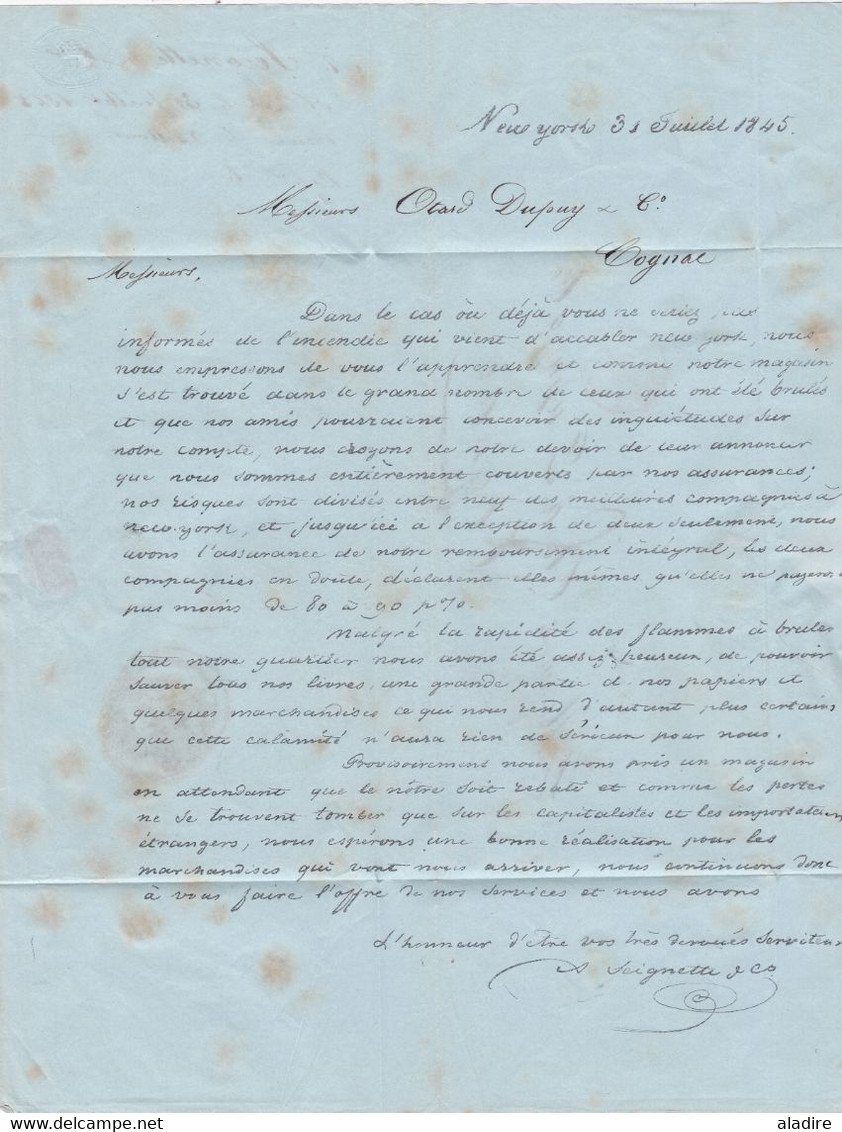 New york 31 Juillet 1845.
Messieurs Otard Dupuy & Co.
Cognac
Messieurs,
Dans le cas òu déjà vous ne seriez pas
informés de l'incendie qui vient d'accabler new york, nous
nous empressons de vous l'apprendre et comme notre magasin
s'est trouvé dans le grand nombre de ceux qui ont été brulés
et que nos amis pourraient concevoir des inquiétudes sur
notre compte, nous croyons de notre devoir de leur annoncer
que nous sommes entièrement couverts par nos assurances;
nos risques sont divisés entre neuf des meilleures compagnies à
new-york, et jusqu'ici a l'exception de deux seulement, nous
avons l'assurance de notre remboursement intégral, les deux
compagnies en doute, déclarent elles mêmes qu'elles ne payeront
pas moins de 80 à 90 p%.
Malgré la rapidité des flammes à bruler
tout notre quartier nous avons été assez heureux, de pouvoir
sauver tous nos livres, une grande partie de nos papiers et
quelques marchandises ce qui nous rend d'autant plus certains
que cette calamité n'aura rien de sérieux pour nous.
Provisoirement nous avons pris un magasin
en attendant que le nôtre soit rebati et comme les pertes
ne se trouvent tomber que sur les capitalistes et les importateurs
étrangers, nous espérons une bonne réalisation pour les
marchandises qui vont nous arriver, nous continuons donc
à vous faire l'offre de nos services et nous avons
L'honneur d'être vos très devoués serviteurs
A Seignette & Co.
aladire